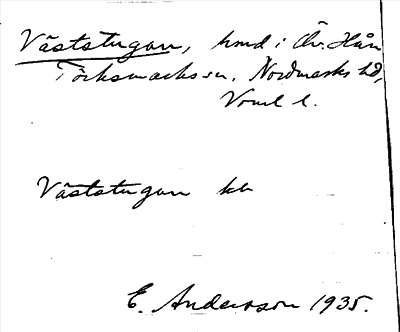 Väststugan, hmd i Öv. Hån
Töcksmarks sn, Nordmarks hd,
Vrml l.
Väststugan kb
E. Andersson 1935.